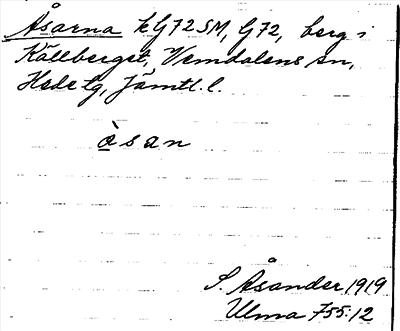 Åsarna kG72SM, G72, berg i
Källberget, Vemdalens sn,
Hede tg, Jämtl. l.
àsan
S. Åsander 1919
Ulma 755:12